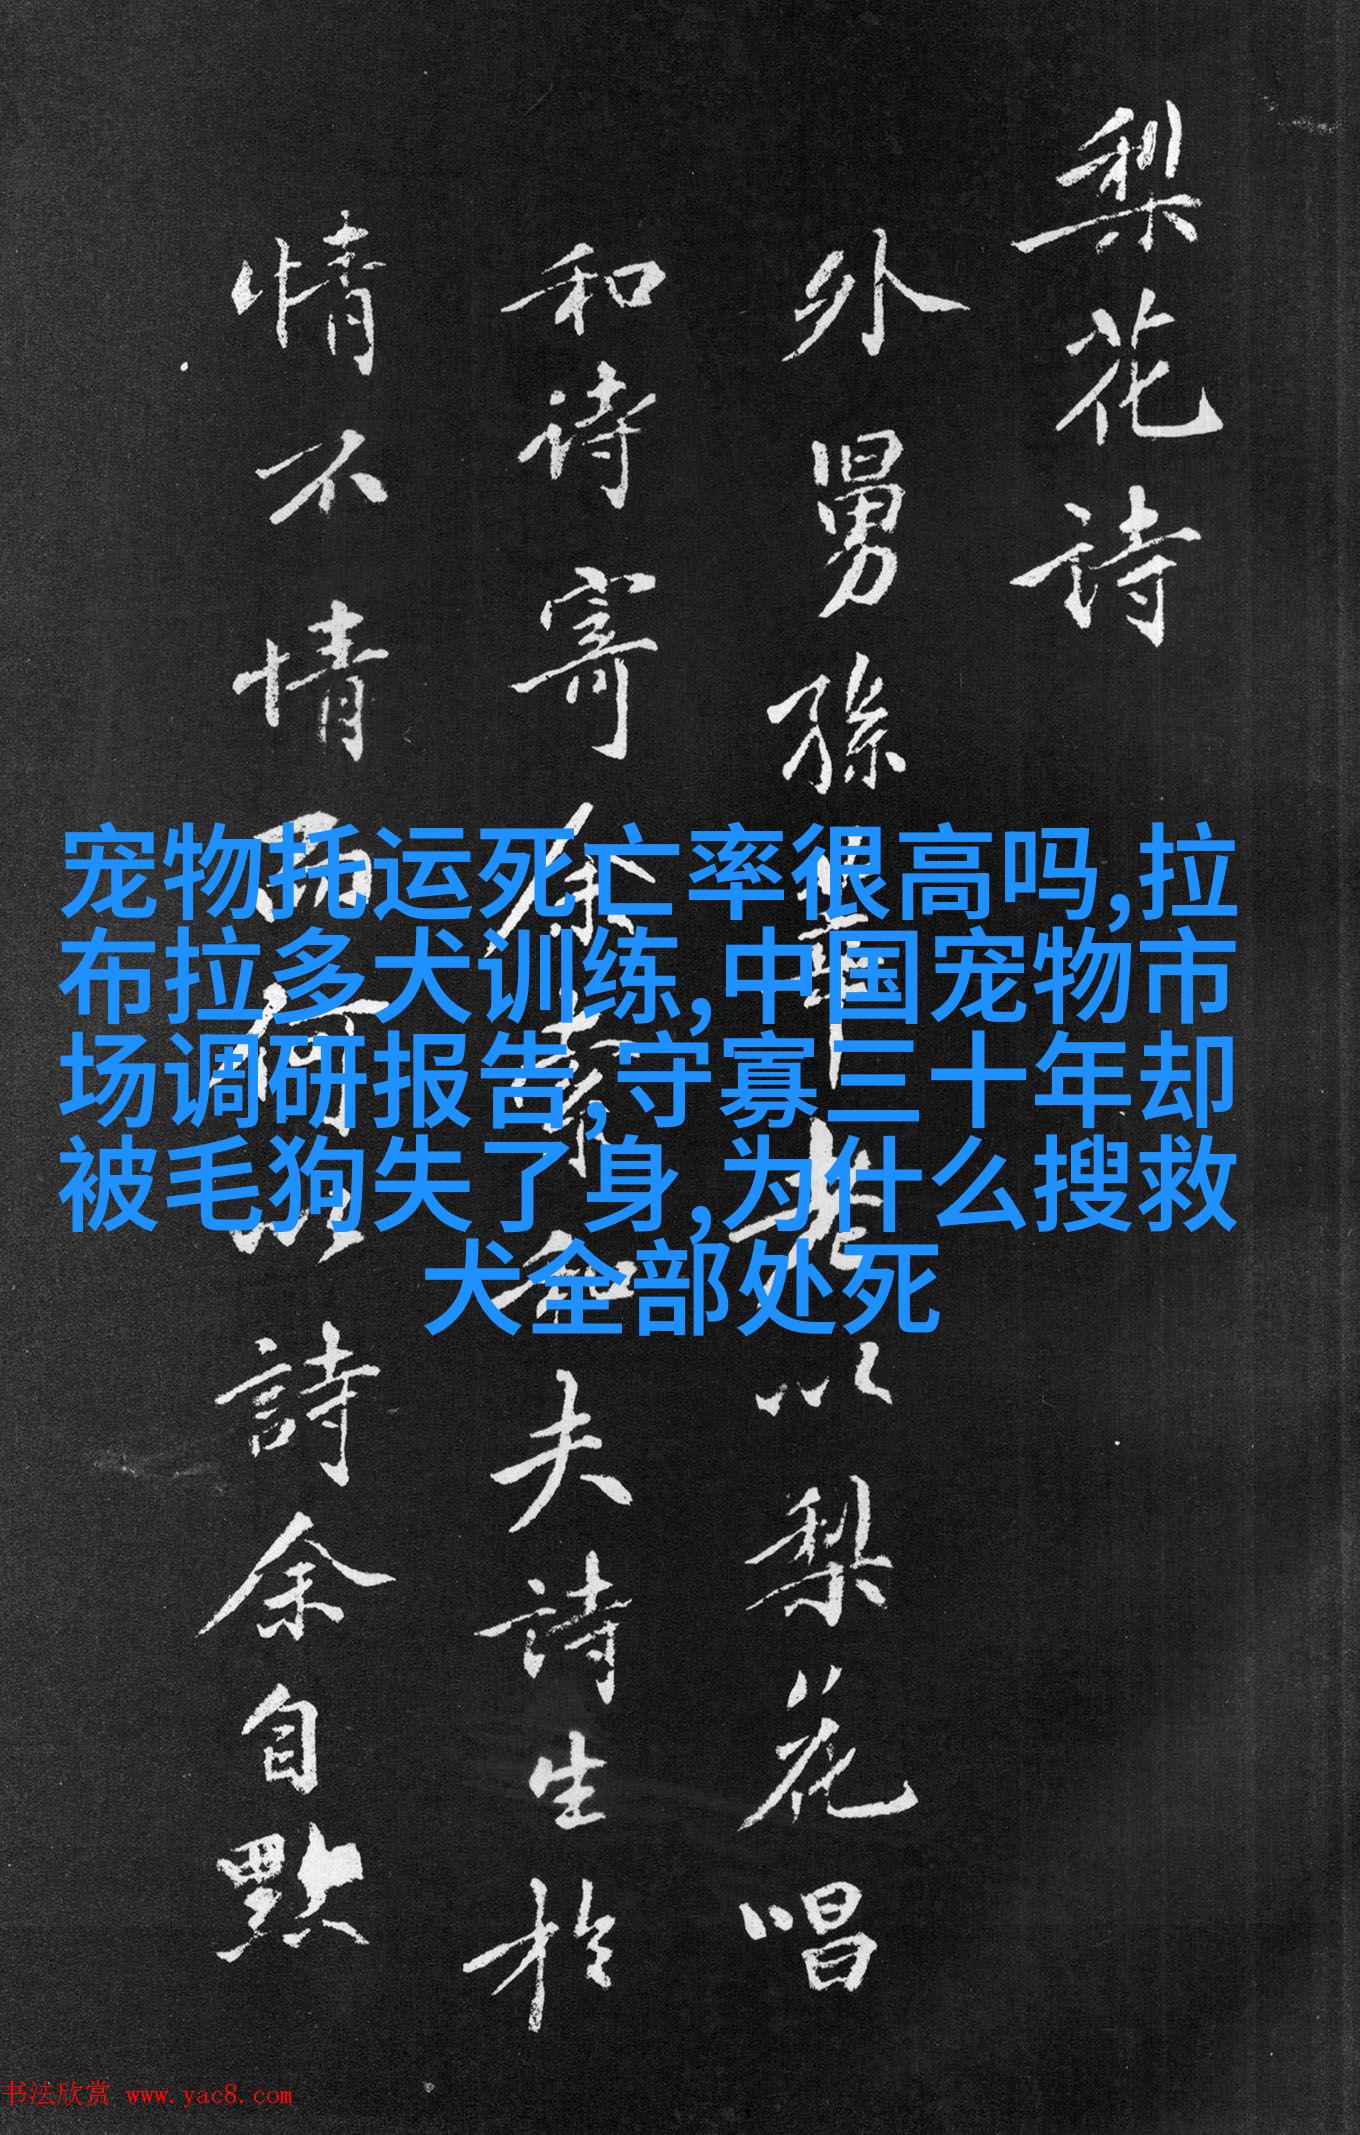 梨花诗
外舅孫莘老以梨花唱
和诗寄余索和夫詩生於
情不情而何以詩余自黙
宠物托运死亡率很高吗,拉
布拉多犬训练,中国宠物市
场调研报告,守寡三十年却
被毛狗失了身,为什么搜救
犬全部处死
书法欣赏 www.yac8.com